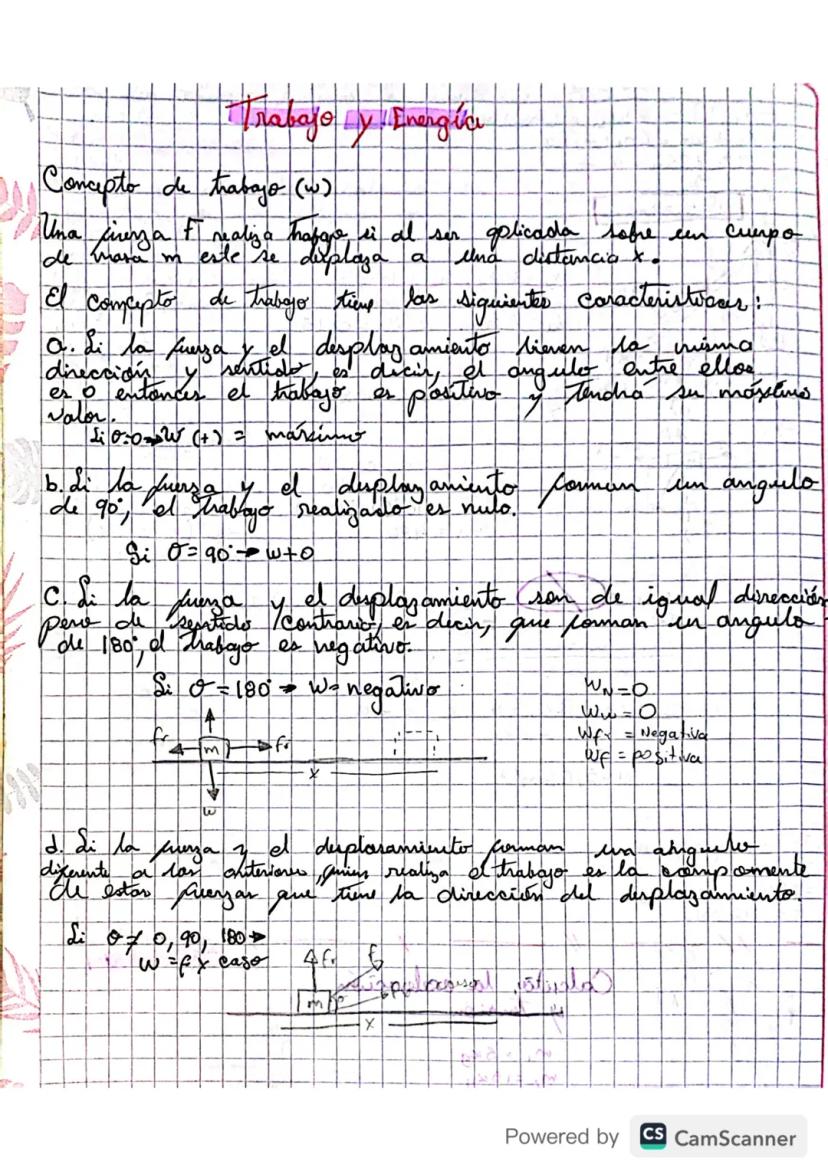 Trabajo y Energía
Concepto de trabajo (w)
Una fuerza F realiza trabajo si al ser aplicada sobre un cuerpo
de masa m este se desplaza a una distancia x.
El concepto de trabajo tiene las siguientes caracteristicas:
a. Si la fuerza y el desplazamiento tienen la misma
dirección y sentido, es decir, el angulo entre ellos
es 0 entonces el trabajo es positivo y Tendrá su máximo
valor.
Si θ=0→W (+) = máximo
b. Si la fuerza y el desplazamiento forman un angulo
de 90°, el trabajo realizado es nulo.
Si θ=90°→ w+0
C. Si la fuerza y el desplazamiento son de igual dirección
pero de sentido contrario, es decir, que forman un angulo
de 180°, el trabajo es negativo.
Si θ=180° → W= negativo
WN=0
Ww=0
Wfr = Negativa
Wf = positiva
fr m fr
x
w
d. Si la fuerza y el desplasamiento forman un angulo
diferente a los anteriores, quien realiza el trabajo es la componente
de estas fuerzas que tiene la dirección del desplazamiento.
Si θ≠ 0, 90, 180→
W = f x caso
fr f
m
x
Powered by CS CamScanner